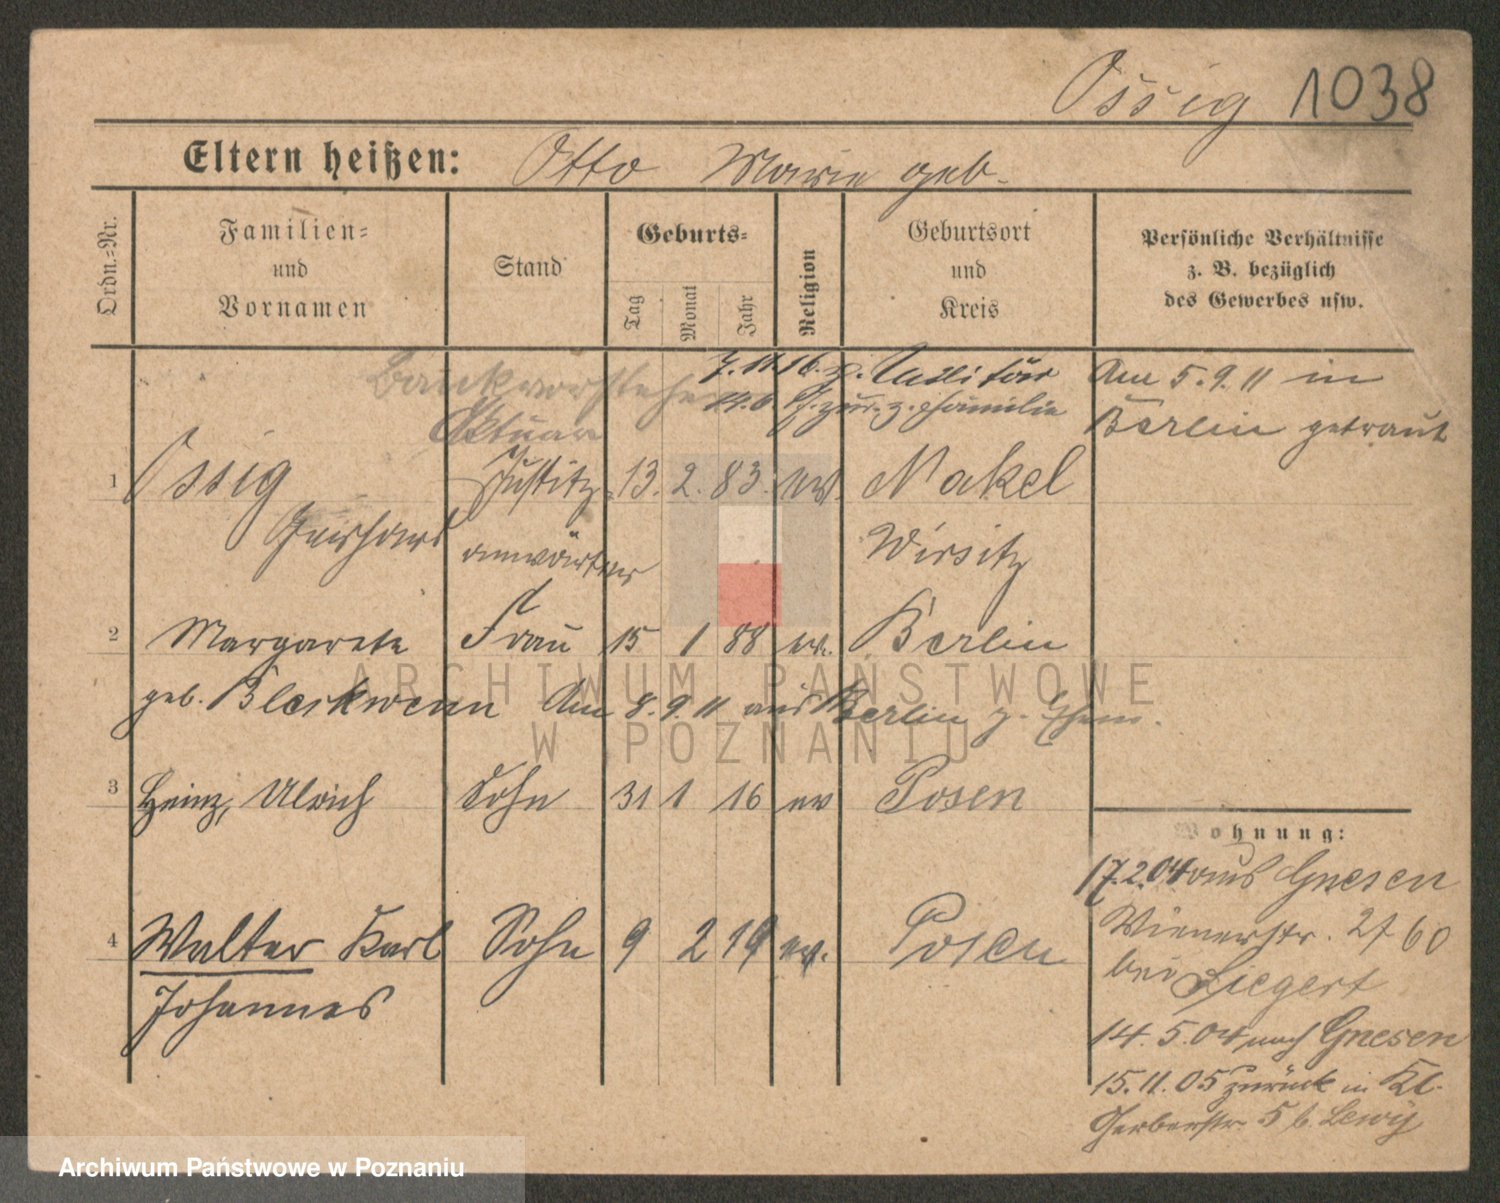 Ossig 1038
Eltern heißen: Otto Marie geb.
Ordn.-Nr.
Familien-
und
Vornamen
Stand
Geburts-
Tag
Monat
Jahr
Religion
Geburtsort
und
Kreis
Persönliche Verhältnisse
z. B. bezüglich
des Gewerbes usw.
Bankvorsteher
Aktuar
7. 11. 16. z. Militär
z. Familie
Am 5. 9. 11 in
Berlin getraut
1 Ossig Justitz 13. 2. 83. ev. Nakel
anwärter Wirsitz
2 Margarete Frau 15 1 88 ev. Berlin
geb. Am 8. 9. 11 aus Berlin z.
3 Heinz, Ulrich Sohn 31 1 16 ev Posen
4 Walter Karl Sohn 9 2 19 ev. Posen
Johannes
Wohnung:
17. 2. 04 aus Gnesen
Wienerstr. 27 60
bei Ziegert
14. 5. 04 nach Gnesen
15. 11. 05 zurück in Kl.
Gerberstr 5 b. Lewy
ARCHIWUM PAŃSTWOWE
W POZNANIU
Archiwum Państwowe w Poznaniu